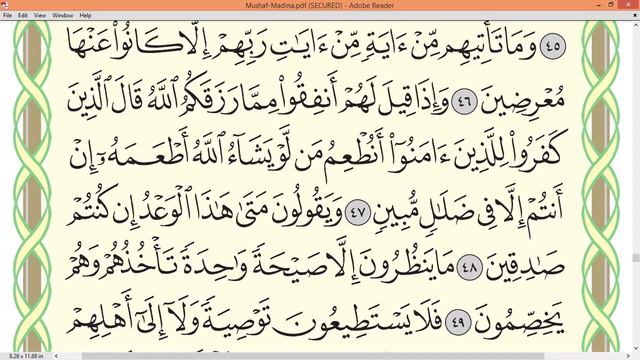 Mushaf-Madina.pdf (SECURED) - Adobe Reader
File Edit View Window Help
٤٥ وَمَا تَأْتِيهِم مِّنْ ءَايَةٍ مِّنْ ءَايَٰتِ رَبِّهِمْ إِلَّا كَانُوا۟ عَنْهَا
مُعْرِضِينَ ٤٦ وَإِذَا قِيلَ لَهُمْ أَنفِقُوا۟ مِمَّا رَزَقَكُمُ ٱللَّهُ قَالَ ٱلَّذِينَ
كَفَرُوا۟ لِلَّذِينَ ءَامَنُوٓا۟ أَنُطْعِمُ مَن لَّوْ يَشَآءُ ٱللَّهُ أَطْعَمَهُۥٓ إِنْ
أَنتُمْ إِلَّا فِى ضَلَٰلٍ مُّبِينٍ ٤٧ وَيَقُولُونَ مَتَىٰ هَٰذَا ٱلْوَعْدُ إِن كُنتُمْ
صَٰدِقِينَ ٤٨ مَا يَنظُرُونَ إِلَّا صَيْحَةً وَٰحِدَةً تَأْخُذُهُمْ وَهُمْ
يَخِصِّمُونَ ٤٩ فَلَا يَسْتَطِيعُونَ تَوْصِيَةً وَلَآ إِلَىٰٓ أَهْلِهِمْ
8.26 x 11.68 in